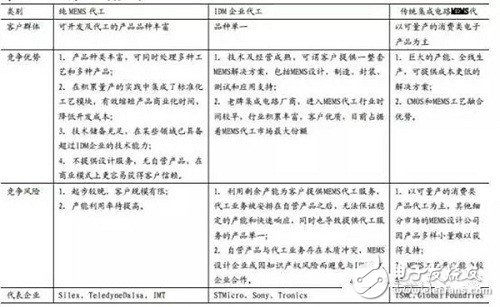 类别
纯MEMS代工
IDM企业代工
传统集成电路MEMS代
客户群体
可开发及代工的产品品种丰富
品种单一
以可量产的消费类电子
产品为主
竞争优势
1. 产品种类丰富,可同时处理多种工
艺和多种产品;
2. 在积累量产的实践中集成了标准化
工艺模块,有效缩短产品商业化时间,
降低开发成本;
3. 技术储备充足,在某些领域已具备
超过IDM企业的技术能力;
4. 不提供设计服务,无自营产品,在
商业模式上更容易获得客户信赖。
1. 技术及经营成熟,可谓客户提供一整套
MEMS解决方案,包括MEMS设计,制造,封装、
测试和应用支持;
2. 老牌集成电路厂商,进入MEMS代工行业时
间较早,行业积累丰富,客户优质,目前占据
着MEMS代工市场最大份额
1. 巨大的产能、全线生
产,可提供成本更低的
解决方案;
2. CMOS和MEMS工艺融合
优势。
竞争风险
1. 起步较晚,客户规模有限;
2. 产能利用率待提高。
1. 利用剩余产能为客户提供MEMS代工服务,
代工业务被安排在自营产品之后,无法保证稳
定的产能和快速响应,同时也导致提供代工服
务的产品单一;
2. 自营产品与代工业务存在本质冲突,MEMS
设计企业或因知识产权风险而避免与
企业合作。
1. 以可量产的消费类
产品代工为主,其他细
分市场的MEMS设计公司
因产品多样小量难以获
得支持;
2. MEMS工艺开发能力较
代表企业
Silex、TeledyneDalsa、IMT
STMicro、Sony、Tronics
TSMC、GlobalFoundries
电子发烧友